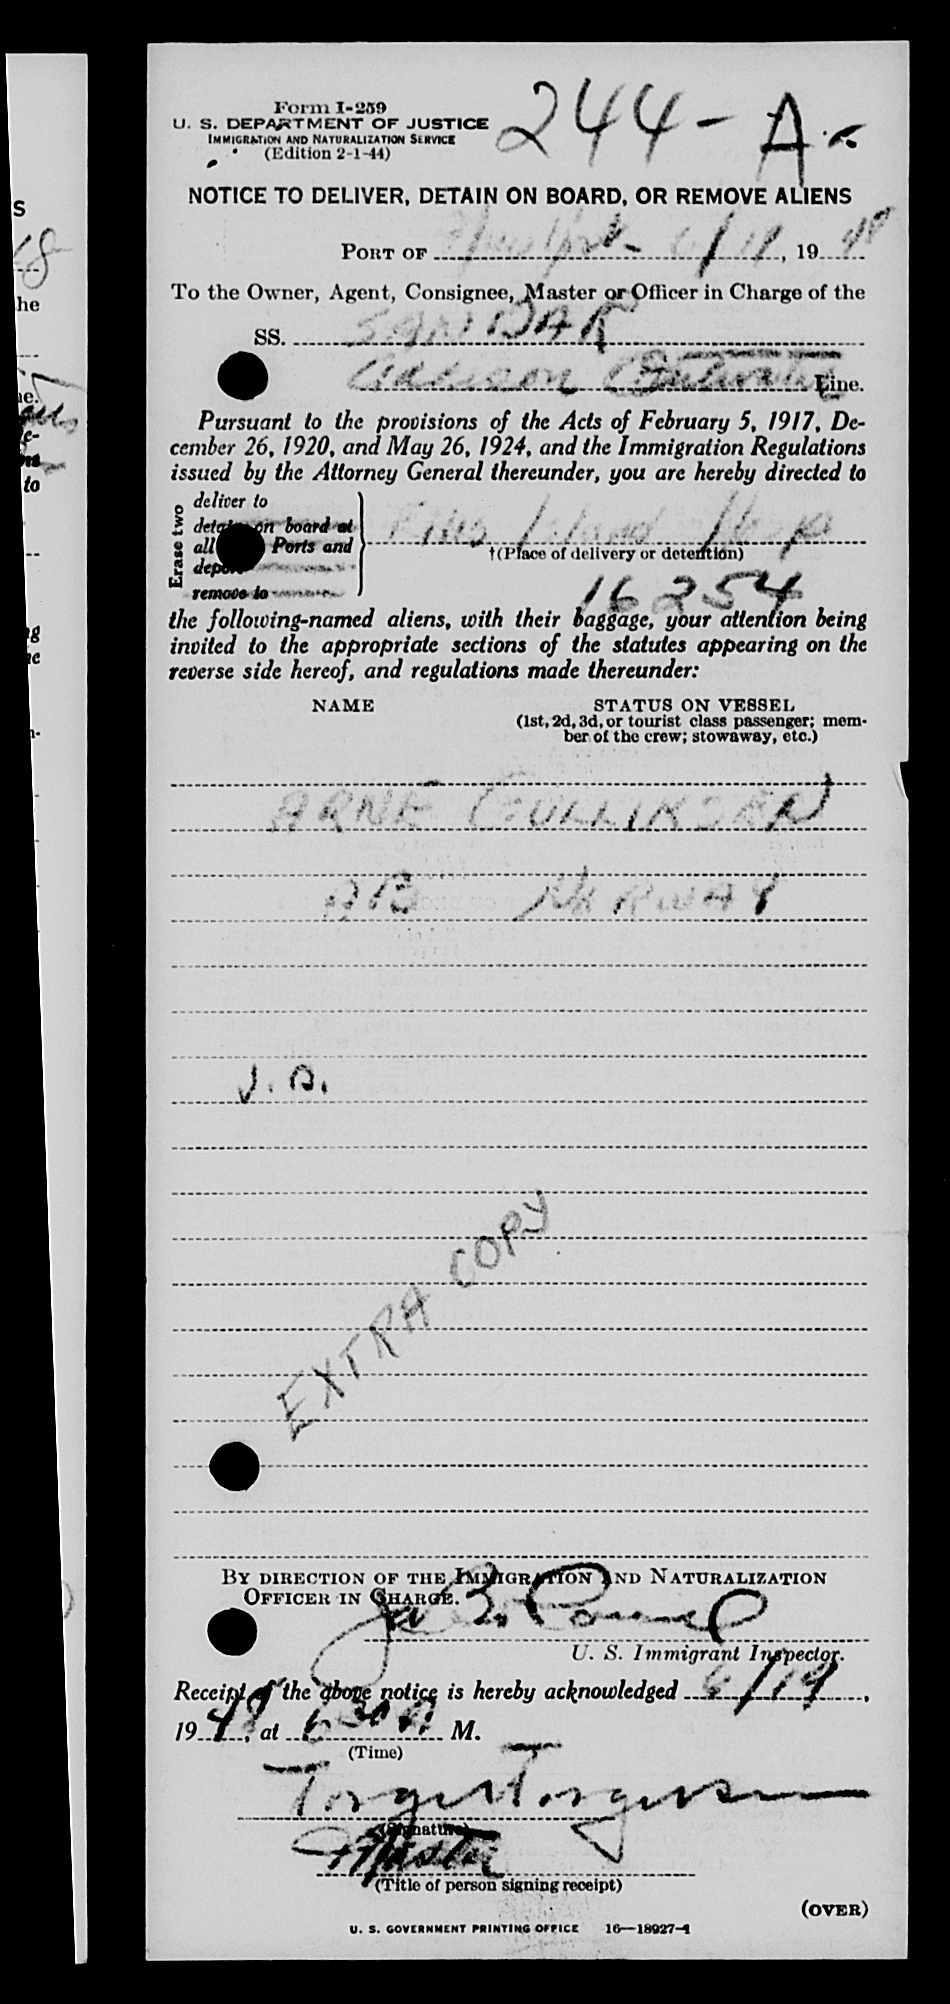 Form I-259
U. S. DEPARTMENT OF JUSTICE
IMMIGRATION AND NATURALIZATION SERVICE
(Edition 2-1-44)
244-A
NOTICE TO DELIVER, DETAIN ON BOARD, OR REMOVE ALIENS
PORT OF New York 6/19, 1948
To the Owner, Agent, Consignee, Master or Officer in Charge of the
SS. SANDAR
Line.
Pursuant to the provisions of the Acts of February 5, 1917, De-
cember 26, 1920, and May 26, 1924, and the Immigration Regulations
issued by the Attorney General thereunder, you are hereby directed to
Erase two
deliver to
detain on board at
all Ports and
deport
remove to
Island Hosp
†(Place of delivery or detention)
16254
the following-named aliens, with their baggage, your attention being
invited to the appropriate sections of the statutes appearing on the
reverse side hereof, and regulations made thereunder:
NAME
STATUS ON VESSEL
(1st, 2d, 3d, or tourist class passenger; mem-
ber of the crew; stowaway, etc.)
ARNE GULLIKSEN
AB NORWAY
EXTRA COPY
BY DIRECTION OF THE IMMIGRATION AND NATURALIZATION
OFFICER IN CHARGE.
U. S. Immigrant Inspector.
Receipt of the above notice is hereby acknowledged 6/19,
1948, at 630 M.
(Time)
Torger Torgersen
(Signature)
Master
(Title of person signing receipt)
(OVER)
U. S. GOVERNMENT PRINTING OFFICE 16—18927-1